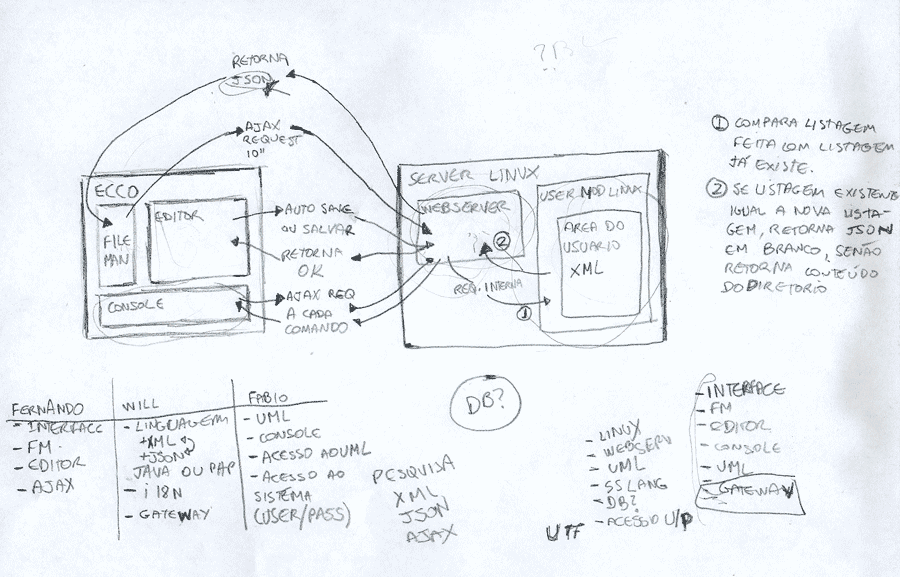 RETORNA
JSON
AJAX
REQUEST
10"
ECCO
FILE
MAN
EDITOR
CONSOLE
AUTO SAVE
OU SALVAR
RETORNA
OK
AJAX REQ
A CADA
COMANDO
SERVER LINUX
WEBSERVER
?
2
REQ. INTERNA
1
USER MOD LINUX
AREA DO
USUARIO
XML
1 COMPARA LISTAGEM
FEITA COM LISTAGEM
JÁ EXISTE.
2 SE LISTAGEM EXISTENTE
IGUAL A NOVA LISTA-
GEM, RETORNA JSON
EM BRANCO, SENÃO
RETORNA CONTEÚDO
DO DIRETORIO
FERNANDO
- INTERFACE
- FM.
- EDITOR
- AJAX
WILL
- LINGUAGEM
+XML
+JSON
JAVA OU PHP
- i18N
- GATEWAY
FABIO
- UML
- CONSOLE
- ACESSO AO UML
- ACESSO AO
SISTEMA
(USER/PASS)
DB?
PESQUISA
XML
JSON
AJAX
- LINUX
- WEBSERV
- UML
- SS LANG
- DB?
- ACESSO U/P
UTF
- INTERFACE
- FM
- EDITOR
- CONSOLE
- UML
- GATEWAY